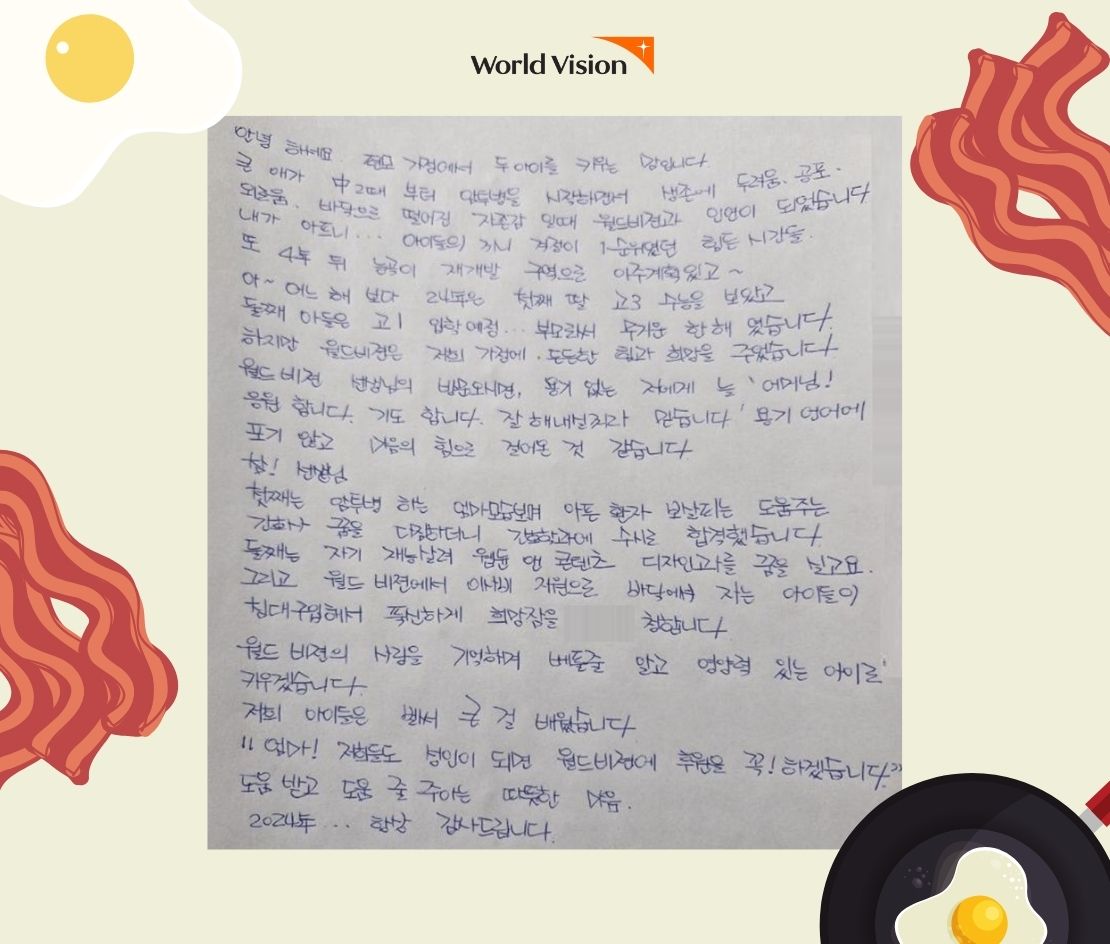 World Vision
안녕 하세요. 편모 가정에서 두 아이를 키우는 맘입니다
큰 애가 中2때 부터 암투병을 시작하면서 생존에 두려움、공포·
외로움、바닥으로 떨어진 자존감 일때 월드비전과 인연이 되었습니다
내가 아프니... 아이들의 끼니 걱정이 1순위였던 힘든 시간들.
또 4年 뒤 재개발 구역으로 이주계획있고~
아~ 어느 해 보다 24年은 첫째 딸 고3 수능을 보았고
둘째 아들은 고1 입학예정... 부모로써 무거운 한해 였습니다.
하지만 월드비전은 저희 가정에 든든한 힘과 희망을 주었습니다
월드비전 선생님의 방문오시면, 용기 없는 저에게 늘 '어머님!
응원 합니다. 기도 합니다. 잘 해내실꺼라 믿습니다' 용기 언어에
포기 않고 마음의 힘으로 걸어온 것 같습니다.
참! 선생님
첫째는 암투병 하는 엄마모습보며 아픈 환자 보살피는 도움주는
간호사 꿈을 다짐하더니 간호학과에 수시로 합격했습니다.
둘째는 자기 재능살려 웹툰 앤 콘텐츠 디자인고라를 꿈을 싣고요.
그리고 월드비전에서 이사비 지원으로 바닥에서 자는 아이들이
침대구입해서 푹신하게 희망잠을 청합니다.
월드비전의 사랑을 기억하며 베풀줄 알고 영향력 있는 아이로
키우겠습니다.
저희 아이들은 벌써 큰 걸 배웠습니다
"엄마! 저희들도 성인이 되면 월드비전에 후원을 꼭! 하겠습니다."
도움 받고 도움 줄 주아는 따뜻한 마음.
2024年... 항상 감사드립니다.